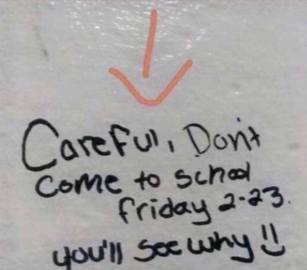 Careful, Don't
come to school
friday 2-23.
you'll see why !!